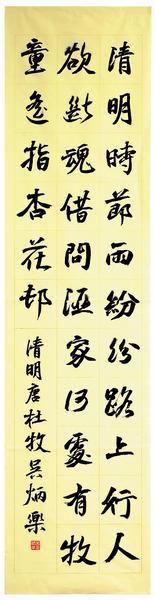 清明時節雨紛紛路上行人
欲斷魂借問酒家何處有牧
童遙指杏花邨
清明唐杜牧吳炳樂